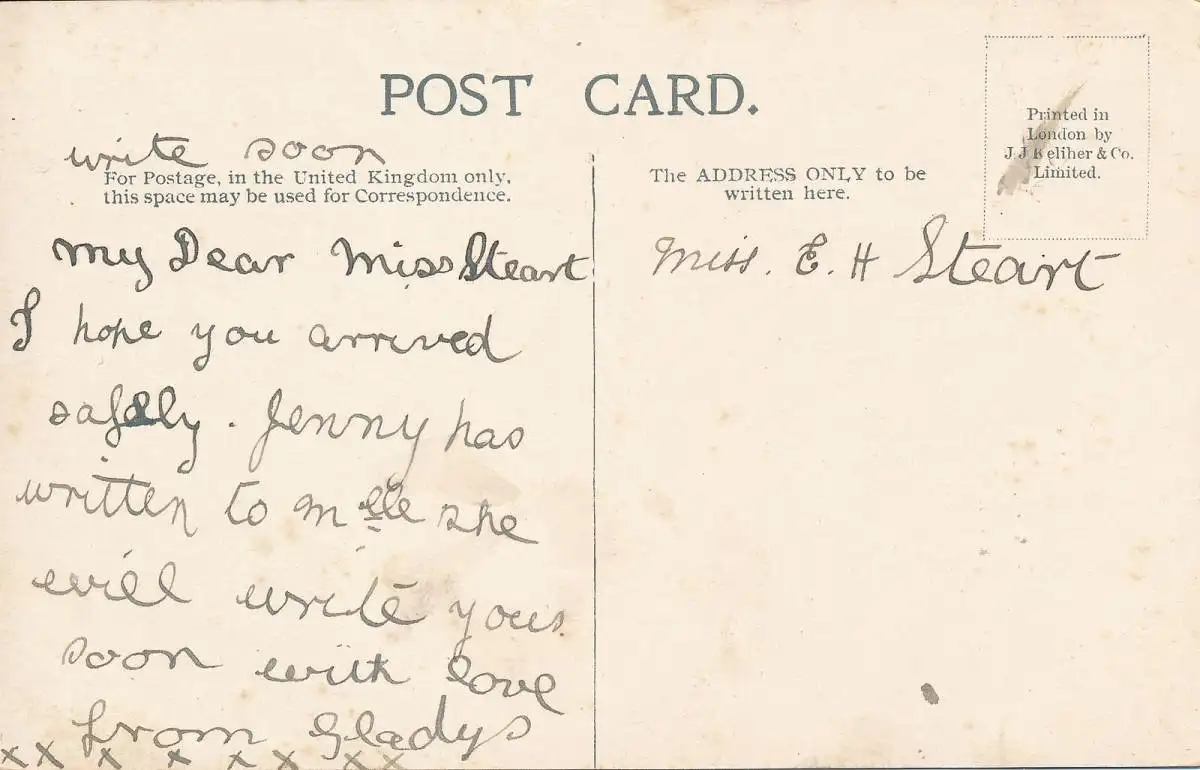 POST CARD.
write soon
For Postage, in the United Kingdom only,
this space may be used for Correspondence.
The ADDRESS ONLY to be
written here.
Printed in
London by
J. J. Keliher & Co.
Limited.
My Dear Miss Steart
I hope you arrived
safely. Jenny has
written to Mlle she
will write yous
soon with love
from Gladys
x x x x x x x x
Miss. E. H Steart